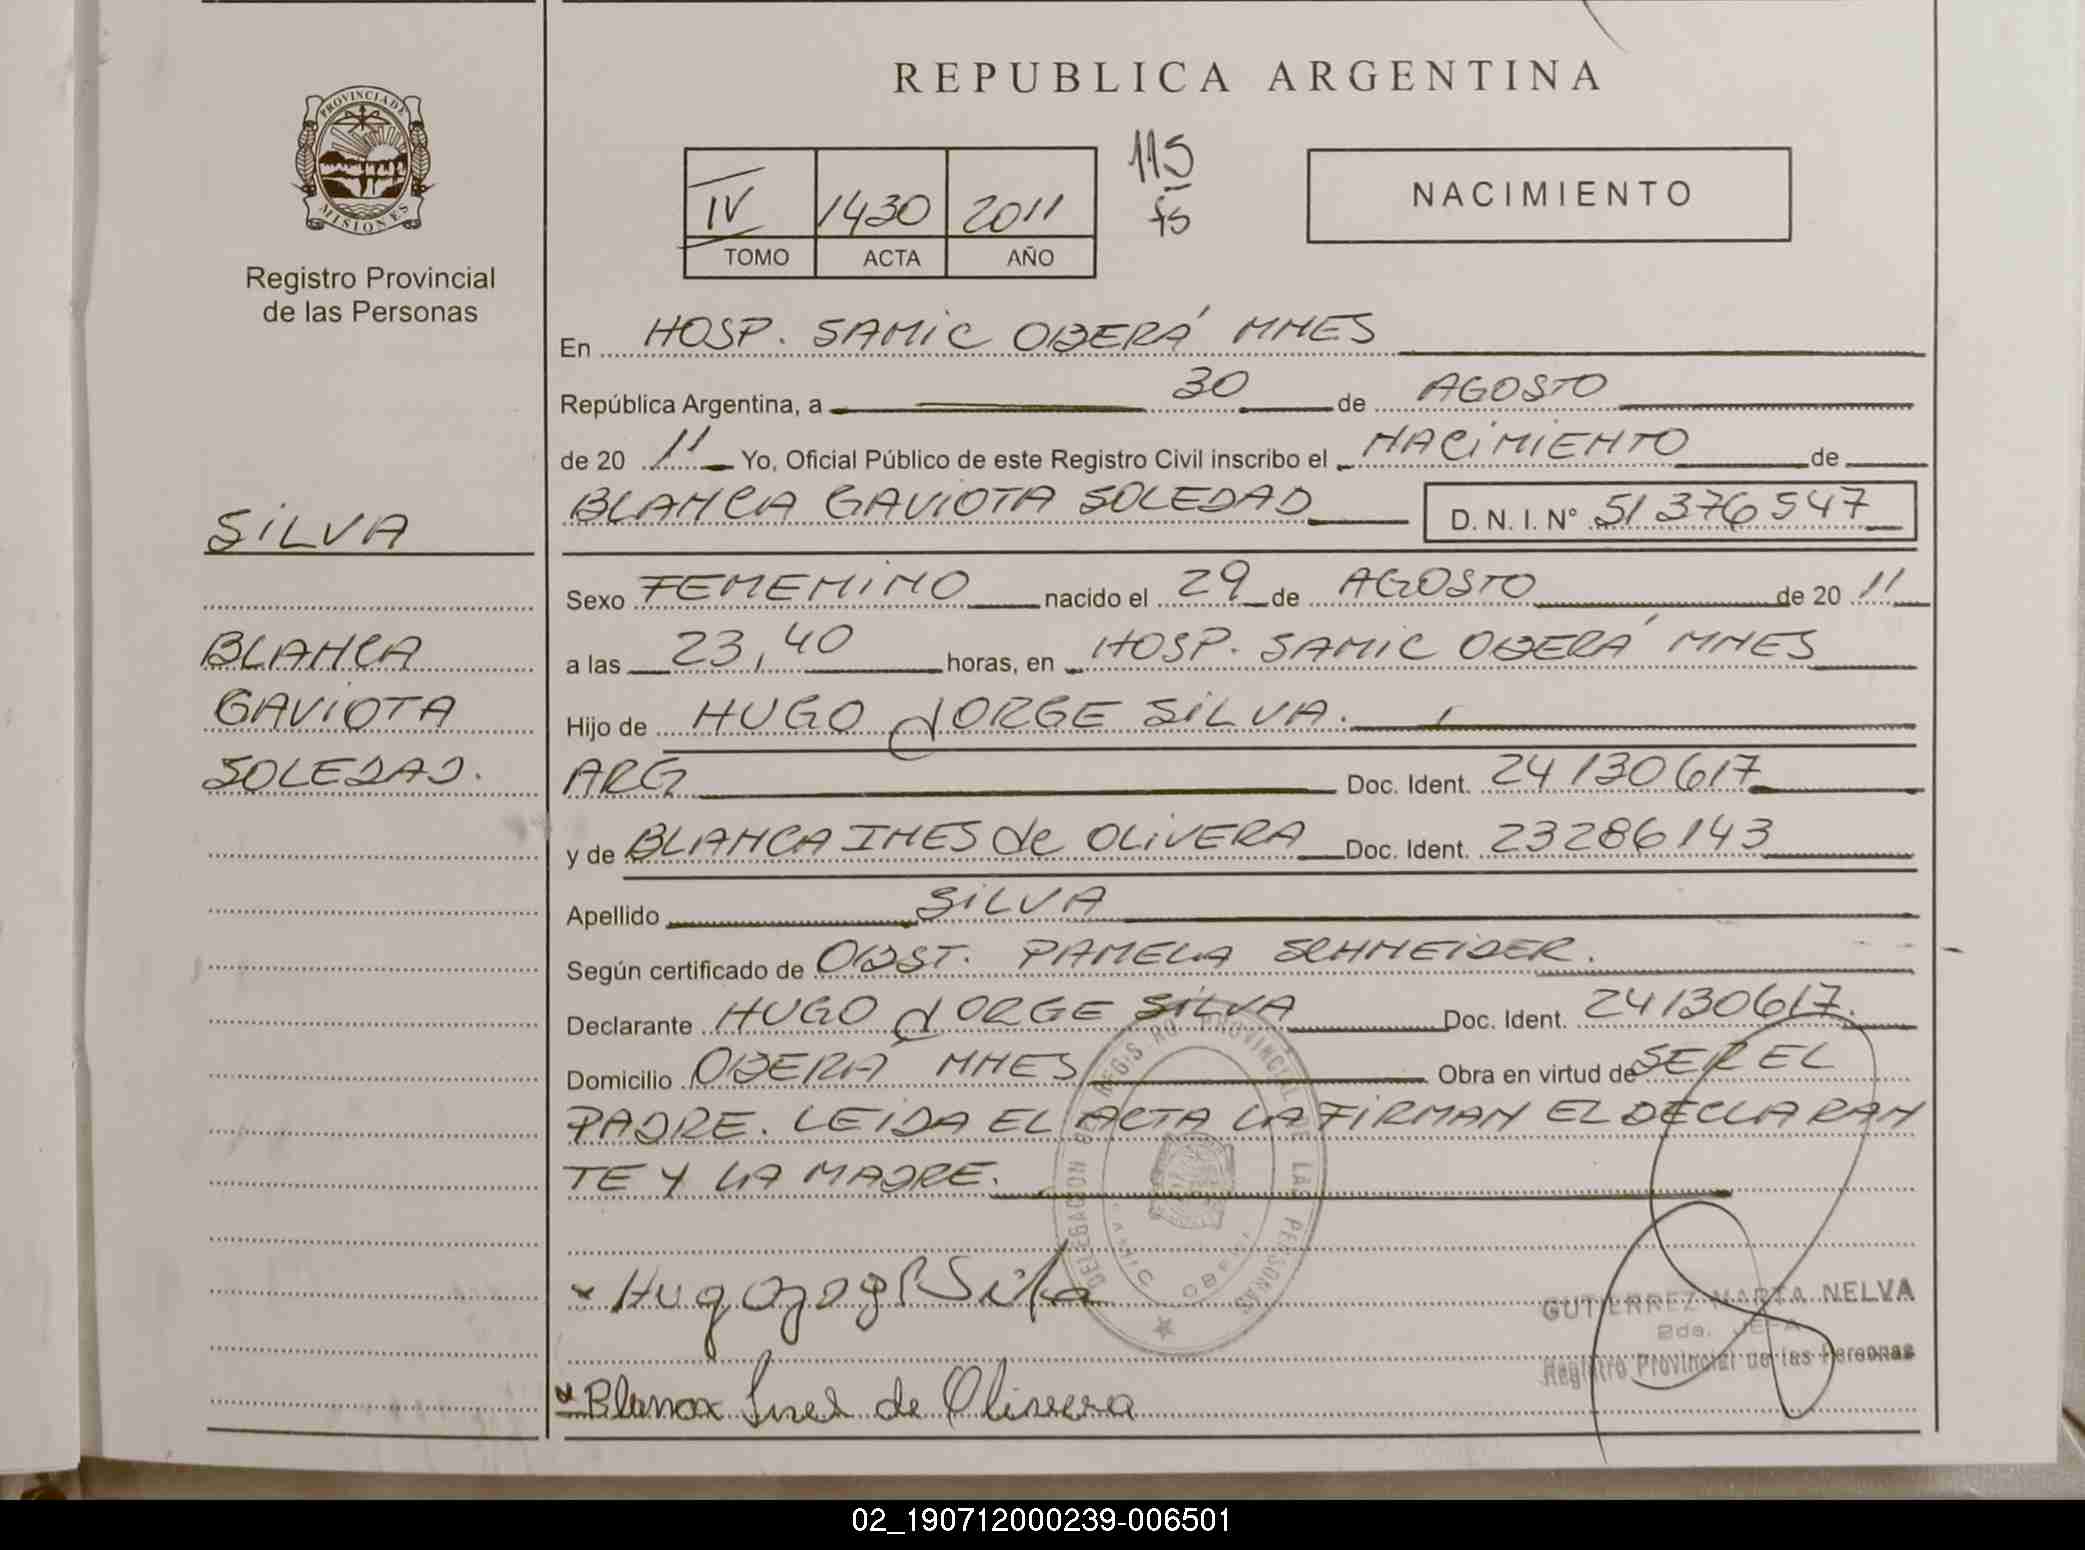 REPUBLICA ARGENTINA
PROVINCIA DE
MISIONES
Registro Provincial
de las Personas
IV 1430 2011
TOMO ACTA AÑO
115
fs
NACIMIENTO
En HOSP. SAMIC OBERÁ MNES
República Argentina, a 30 de AGOSTO
de 20 11 Yo, Oficial Público de este Registro Civil inscribo el NACIMIENTO de
BLANCA GAVIOTA SOLEDAD D. N. I. N° 51 376 547
SILVA
BLANCA
GAVIOTA
SOLEDAD.
Sexo FEMENINO nacido el 29 de AGOSTO de 20 11
a las 23,40 horas, en HOSP. SAMIC OBERÁ MNES
Hijo de HUGO JORGE SILVA.
ARG Doc. Ident. 24 130 617
y de BLANCA INES de OLIVERA Doc. Ident. 23286143
Apellido SILVA
Según certificado de OBST. PAMELA SCHNEIDER.
Declarante HUGO JORGE SILVA Doc. Ident. 24130617.
Domicilio OBERÁ MNES Obra en virtud de SER EL
PADRE. LEIDA EL ACTA LA FIRMAN EL DECLARAN
TE Y LA MADRE.
DELEGACION REGISTRO PROVINCIAL DE LAS PERSONAS
Hugo Silva
Blanca Ines de Olivera
GUTIERREZ MARTA NELVA
2da. JEFA
Registro Provincial de las Personas
02_190712000239-006501